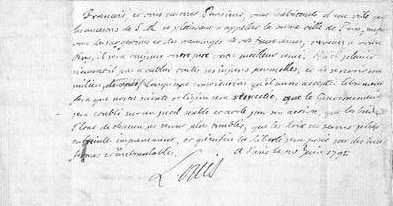 Francais, et vous surtout Parisiens, vous habitants d'une ville que
les ancestres de S. M. se plaisoient a appeller la bonne ville de Paris, mefiez
vous des suggestions et des mensonges de vos faux amis, revenez a votre
Roy, il sera toujours votre pere, votre meilleur ami. Quel plaisir
n'aura t'il pas a oublier toutes ses injures personnelles, et de se revoir au
milieu de vous, lorsqu'une constitution qu'il aura acceptée librement
fera que notre sainte religion sera respectée, que le Gouvernement
sera etabli sur un pied stable et utile par son action, que les biens et
l'etat de chacun ne seront plus troublés, que les loix ne seront plus
enfreintes impunement, et qu'enfin la liberté sera posée sur des bases
fermes et inebranlables. A Paris le 20 Juin 1791
Louis